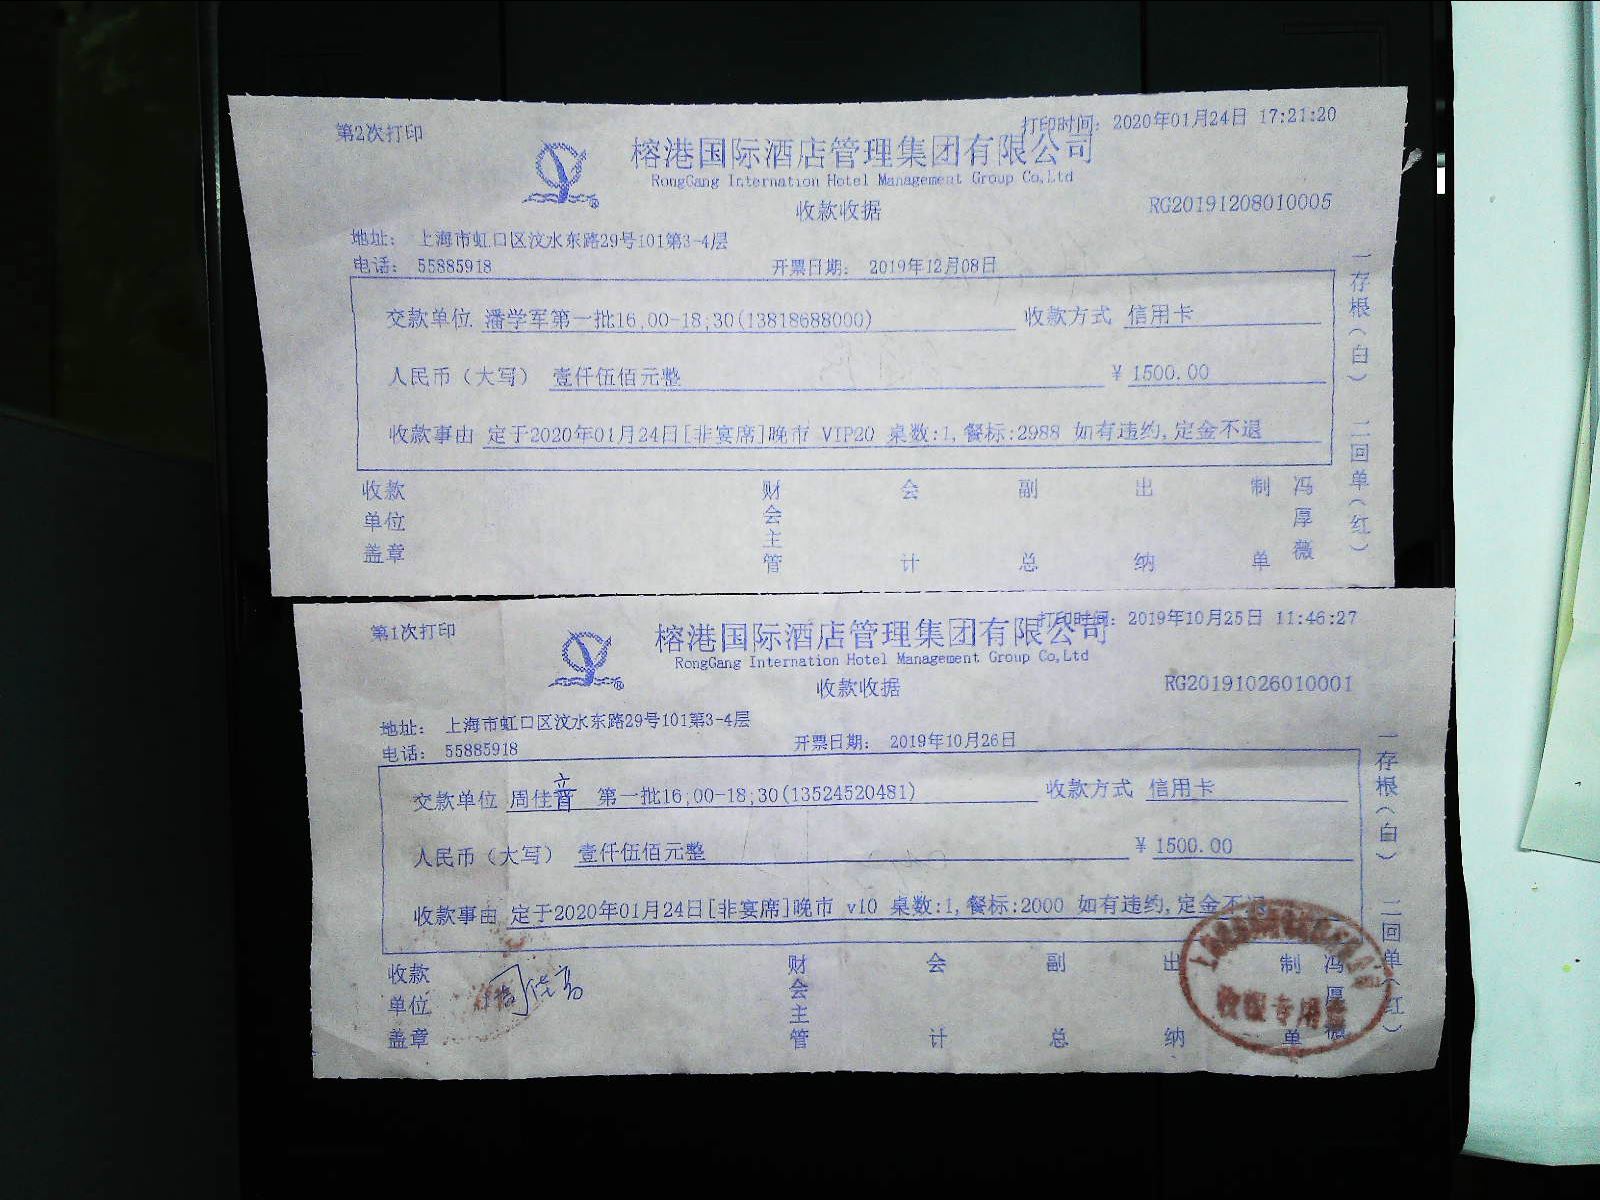 第2次打印
打印时间: 2020年01月24日 17:21:20
榕港国际酒店管理集团有限公司
RongGang Internation Hotel Management Group Co,Ltd
收款收据
RG20191208010005
地址: 上海市虹口区汶水东路29号101第3-4层
电话: 55885918
开票日期: 2019年12月08日
交款单位 潘学军第一批16,00-18;30(13818688000) 收款方式 信用卡
人民币(大写) 壹仟伍佰元整 ¥ 1500.00
收款事由 定于2020年01月24日[非宴席]晚市 VIP20 桌数:1,餐标:2988 如有违约,定金不退
收款单位盖章 财会主管 会计 副总 出纳 制单 冯厚薇
一存根(白) 二回单(红)
第1次打印
打印时间: 2019年10月25日 11:46:27
榕港国际酒店管理集团有限公司
RongGang Internation Hotel Management Group Co,Ltd
收款收据
RG20191026010001
地址: 上海市虹口区汶水东路29号101第3-4层
电话: 55885918
开票日期: 2019年10月26日
交款单位 周佳音 第一批16;00-18;30(13524520481) 收款方式 信用卡
人民币(大写) 壹仟伍佰元整 ¥ 1500.00
收款事由 定于2020年01月24日[非宴席]晚市 v10 桌数:1,餐标:2000 如有违约,定金不退
收款单位盖章 财会主管 会计 副总 出纳 制单 冯厚薇
一存根(白) 二回单(红)
周佳音